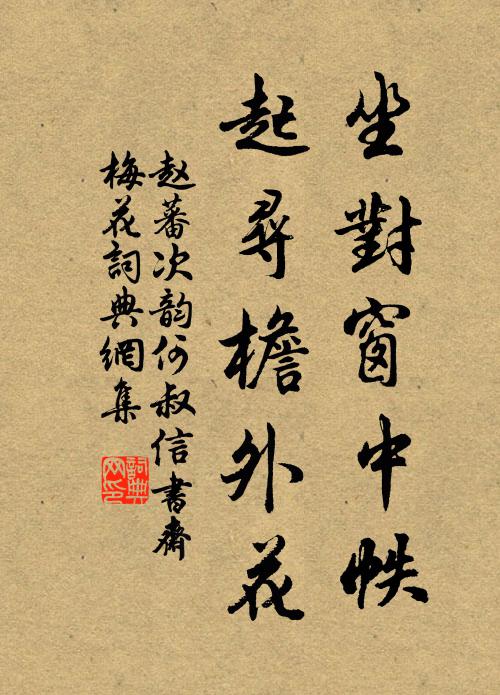 坐對窗中帙
起尋檐外花
赵蕃次韵何叔信書齋
梅花詞典網集
詞典网印